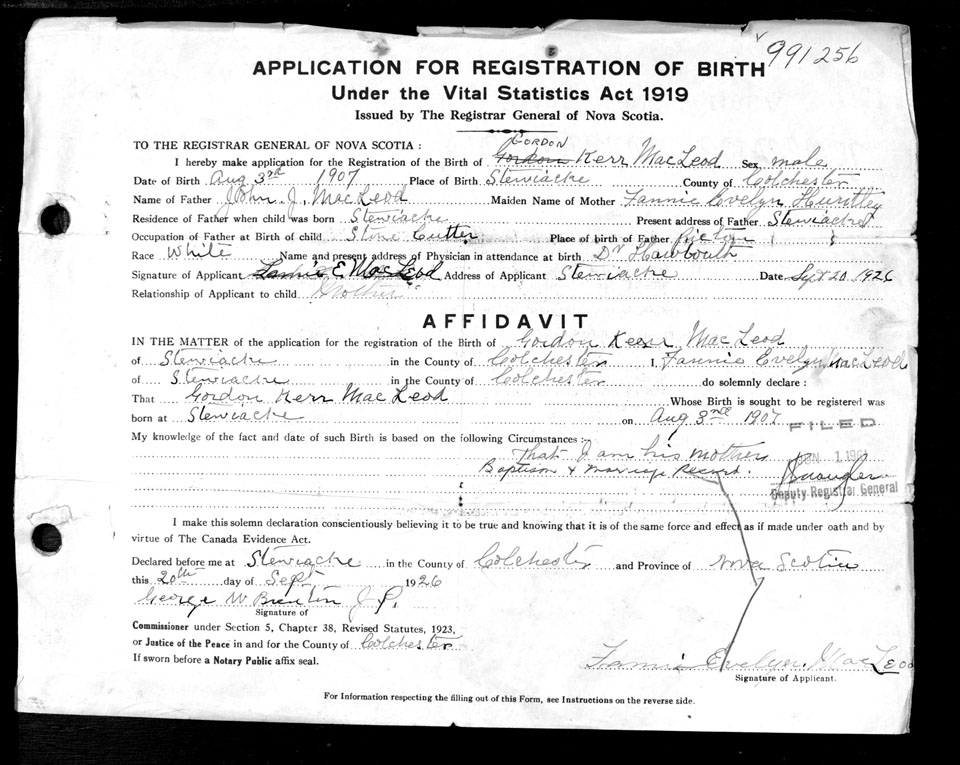 991256
APPLICATION FOR REGISTRATION OF BIRTH
Under the Vital Statistics Act 1919
Issued by The Registrar General of Nova Scotia.
GORDON
TO THE REGISTRAR GENERAL OF NOVA SCOTIA :
I hereby make application for the Registration of the Birth of Gordon Kerr MacLeod Sex male
Date of Birth Aug 3rd 1907 Place of Birth Stewiacke County of Colchester
Name of Father John J. MacLeod Maiden Name of Mother Fannie Evelyn Huntley
Residence of Father when child was born Stewiacke Present address of Father Stewiacke
Occupation of Father at Birth of child Stone Cutter Place of birth of Father Pictou
Race White Name and present address of Physician in attendance at birth Dr
Signature of Applicant Fannie E. MacLeod Address of Applicant Stewiacke Date Sept 20 1926
Relationship of Applicant to child Mother
AFFIDAVIT
IN THE MATTER of the application for the registration of the Birth of Gordon Kerr MacLeod
of Stewiacke in the County of Colchester I, Fannie Evelyn MacLeod
of Stewiacke in the County of Colchester do solemnly declare :
That Gordon Kerr MacLeod Whose Birth is sought to be registered was
born at Stewiacke on Aug 3rd 1907
FILED
My knowledge of the fact and date of such Birth is based on the following Circumstances :-
That I am his mother
Baptism & Marriage Record.
Deputy Registrar General
I make this solemn declaration conscientiously believing it to be true and knowing that it is of the same force and effect as if made under oath and by
virtue of The Canada Evidence Act.
Declared before me at Stewiacke in the County of Colchester and Province of Nova Scotia
this 20th day of Sept 1926
George W Brenton J. P.
Signature of
Commissioner under Section 5, Chapter 38, Revised Statutes, 1923,
or Justice of the Peace in and for the County of Colchester
If sworn before a Notary Public affix seal.
Fannie Evelyn MacLeod
Signature of Applicant.
For Information respecting the filling out of this Form, see Instructions on the reverse side.